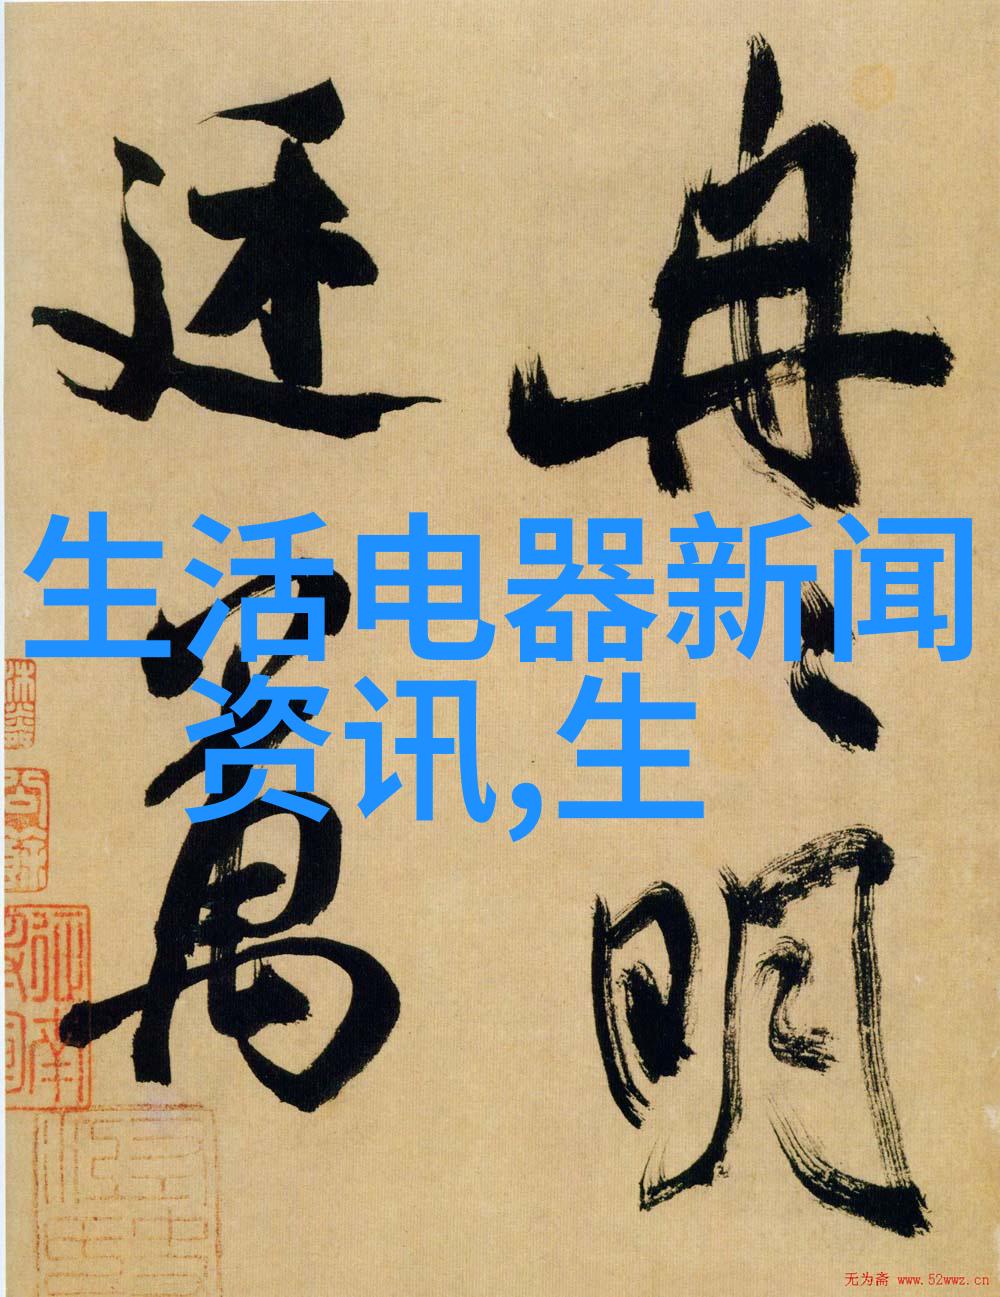 冉々明
廷萬
生活电器新闻
资讯,生
无为斋 www.52wwz.cn